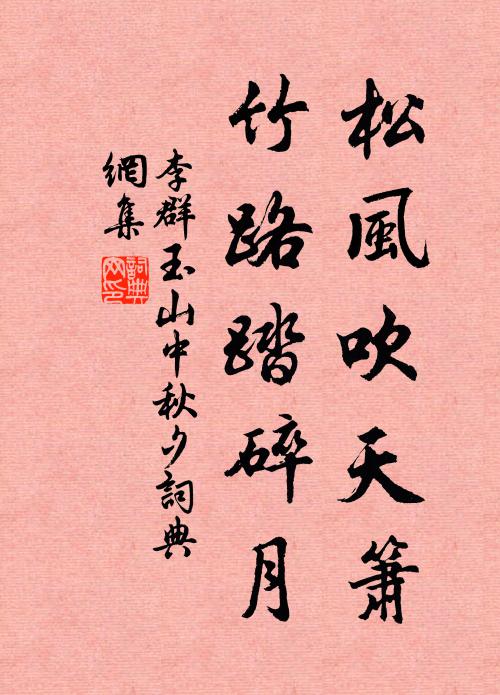 松風吹天簫
竹路踏碎月
李群玉山中秋夕詞典
網集
詞典
网印